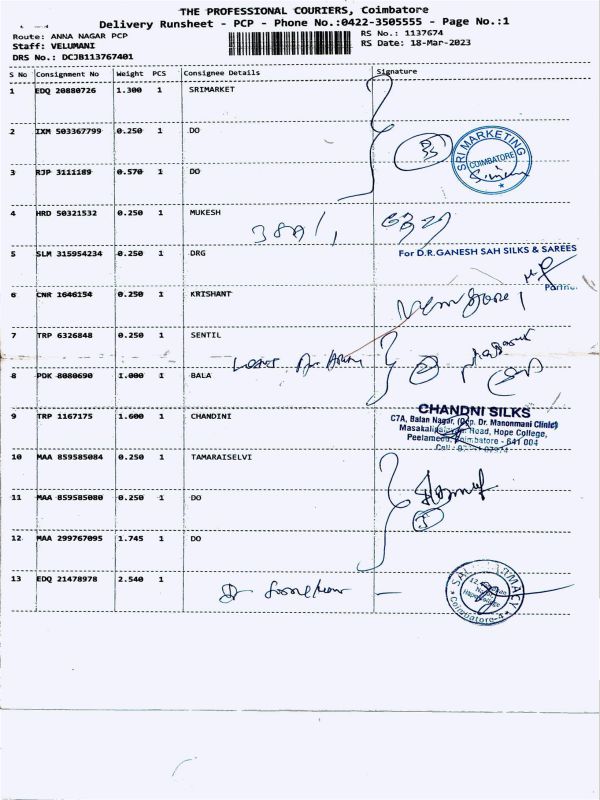 THE PROFESSIONAL COURIERS, Coimbatore
Delivery Runsheet - PCP - Phone No.:0422-3505555 - Page No.:1
Route: ANNA NAGAR PCP
RS No.: 1137674
Staff: VELUMANI
RS Date: 18-Mar-2023
DRS No.: DCJB113767401
S No Consignment No Weight PCS Consignee Details Signature
1 EDQ 20880726 1.300 1 SRIMARKET
2 IXM 503367799 0.250 1 DO
SRI MARKETING
COIMBATORE
3 RJP 3111189 0.570 1 DO
4 HRD 50321532 0.250 1 MUKESH
5 SLM 315954234 0.250 1 DRG
For D.R.GANESH SAH SILKS & SAREES
Partner
6 CNR 1646154 0.250 1 KRISHANT
7 TRP 6326848 0.250 1 SENTIL
8 PDK 8080690 1.000 1 BALA
9 TRP 1167175 1.600 1 CHANDINI
CHANDNI SILKS
C7A, Balan Nagar, (Opp. Dr. Manonmani Clinic)
Road, Hope College,
Coimbatore - 641 004
10 MAA 859585084 0.250 1 TAMARAISELVI
11 MAA 859585080 0.250 1 DO
12 MAA 299767095 1.745 1 DO
13 EDQ 21478978 2.540 1
Coimbatore-4